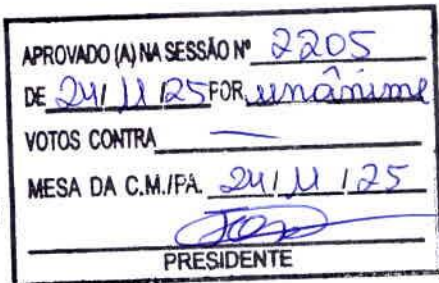 APROVADO (A) NA SESSÃO Nº 2205
DE 24/11/25 POR unânime
VOTOS CONTRA —
MESA DA C.M./PA. 24/11/25
PRESIDENTE